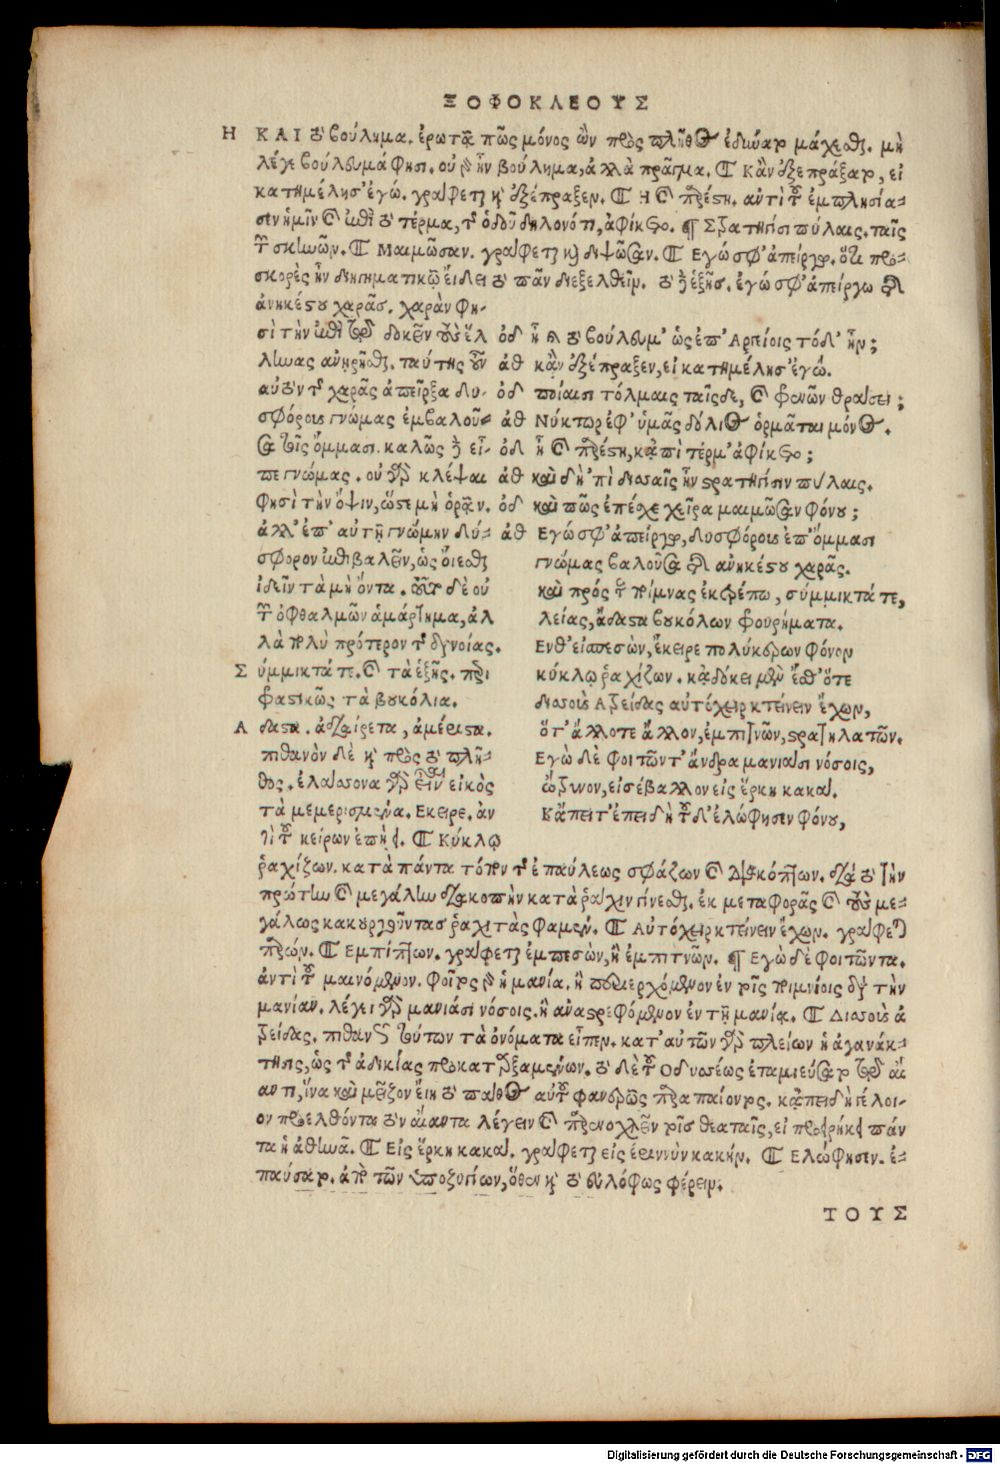 ΞΟΦΟΚΛΕΟΥΣ
Η ΚΑΙ τὸ βούλημα. ἐρωτᾷ πῶς μόνος ὢν πρὸς πλῆθος ἐδύνατο μάχεσθαι. μὴ
λέγε βούλευμά φησι. οὐ γὰρ ἦν βούλημα, ἀλλὰ πρᾶγμα. ¶ Κἂν ἐξεπράξατο, εἰ
κατημέλησ' ἐγώ. γράφεται καὶ ἐξέπραξεν. ¶ Η καὶ παρέστη. ἀντὶ τοῦ ἐμπλησία-
σεν ἡμῖν καὶ ἐπὶ τὸ τέρμα, τῆς ὁδοῦ δηλονότι, ἀφίκετο. ¶ Στρατηγίσι πύλαις. ταῖς
τῶν σκηνῶν. ¶ Μαιμῶσαν. γράφεται καὶ διψῶσαν. ¶ Εγώ σφ' ἀπείργω. ὅτι προ-
σκορὲς ἦν διηγηματικῷ εἴδει τὸ πᾶν διεξελθεῖν. τὸ δὲ ἑξῆς. ἐγώ σφ' ἀπείργω τῆς
ἀνηκέστου χαρᾶς. χαρὰν φη-
σὶ τὴν ἐπὶ τῷ δοκεῖν τοὺς ἕλ
λήνας ἀνῃρῆσθαι. ταύτης οὖν
αὐτὸν τῆς χαρᾶς ἀπεῖρξα δυ-
σφόρους γνώμας ἐμβαλοῦ-
σα τοῖς ὄμμασι. καλῶς δὲ εἶ-
πε γνώμας. οὐ γὰρ κλέψαι
φησὶ τὴν ὄψιν, ὥστε μὴ ὁρᾶν.
ἀλλ' ἐπ' αὐτῇ γνώμην δύ-
σφορον ἐπιβαλεῖν, ὡς οἴεσθαι
ἰδεῖν τὰ μὴ ὄντα. τοῦτο δὲ οὐ
τῶν ὀφθαλμῶν ἁμάρτημα, ἀλ
λὰ πολὺ πρότερον τῆς διανοίας.
Σ ύμμικτά τε. καὶ τὰ ἑξῆς. περι
φραστικῶς τὰ βουκόλια.
Α δαστα. ἀδιαίρετα, ἀμέριστα.
πιθανὸν δὲ καὶ πρὸς τὸ πλῆ-
θος. ἐλάσσονα γὰρ εἶναι εἰκὸς
τὰ μεμερισμένα. Εκειρε. ἀν
τὶ τοῦ κείρων ἐποίει. ¶ Κύκλῳ
οδ ἦ καὶ τὸ βούλευμ' ὡς ἐπ' Αργείοις τόδ' ἦν;
αθ κἂν ἐξέπραξεν, εἰ κατημέλησ' ἐγώ.
οδ ποίαισι τόλμαις ταῖσδε, καὶ φρενῶν θράσει;
αθ Νύκτωρ ἐφ' ὑμᾶς δόλιος ὁρμᾶται μόνος.
οδ ἦ καὶ παρέστη, κἀπὶ τέρμ' ἀφίκετο;
αθ καὶ δὴ 'πὶ δισσαῖς ἦν στρατηγίσιν πύλαις.
οδ καὶ πῶς ἐπέσχε χεῖρα μαιμῶσαν φόνου;
αθ Εγώ σφ' ἀπείργω, δυσφόρους ἐπ' ὄμμασι
γνώμας βαλοῦσα τῆς ἀνηκέστου χαρᾶς.
καὶ πρός τε ποίμνας ἐκτρέπω, σύμμικτά τε,
λείας, ἄδαστα βουκόλων φρουρήματα.
Ενθ' εἰσπεσὼν, ἔκειρε πολύκερων φόνον
κύκλῳ ῥαχίζων. κᾀδόκει μὲν ἔσθ' ὅτε
δισσοὺς Ατρείδας αὐτόχειρ κτείνειν ἔχων,
ὅτ' ἄλλοτε ἄλλον, ἐμπιτνῶν, στρατηλατῶν.
Εγὼ δὲ φοιτῶντ' ἄνδρα μανιάσι νόσοις,
ὤτρυνον, εἰσέβαλλον εἰς ἕρκη κακά.
Κᾄπειτ' ἐπειδὴ τοῦδ' ἐλώφησεν φόνου,
ῥαχίζων. κατὰ πάντα τόπον τῆς ἐπαύλεως σφάζων καὶ διακόπτων. διὰ τὸ τὴν
πρώτην καὶ μεγάλην διακοπὴν κατὰ ῥάχιν γίνεσθαι. ἐκ μεταφορᾶς καὶ τοὺς με-
γάλως κακουργοῦντας ῥαχιτὰς φαμέν. ¶ Αὐτόχειρ κτείνειν ἔχων. γράφεται
παρών. ¶ Εμπίπτων. γράφεται ἐμπεσὼν, ἢ ἐμπιτνῶν. ¶ Εγὼ δὲ φοιτῶντα.
ἀντὶ τοῦ μαινόμενον. φοῖτος γὰρ ἡ μανία. ἢ περιερχόμενον ἐν τοῖς ποιμνίοις διὰ τὴν
μανίαν. λέγει γὰρ μανιάσι νόσοις. ἢ ἀναστρεφόμενον ἐν τῇ μανίᾳ. ¶ Δισσοὺς ἀ
τρείδας. πιθανῶς τούτων τὰ ὀνόματα εἶπεν. κατ' αὐτῶν γὰρ πλείων ἡ ἀγανάκ-
τησις, ὡς τῆς ἀδικίας προκαταρξαμένων. τὸ δὲ τοῦ Οδυσσέως ἐταμιεύσατο τῷ αἴ
αντι, ἵνα καὶ μεῖζον ἔιη τὸ πάθος αὐτοῦ φανερῶς παραπαίοντος. κᾀπειδὴ γέλοι-
ον προελθόντα τὸν αἴαντα λέγειν καὶ παρενοχλεῖν τοῖς θεαταῖς, εἰ προείρηκε πάν
τα ἡ ἀθηνᾶ. ¶ Εἰς ἕρκη κακά. γράφεται εἰς ἐριννὺν κακήν. ¶ Ελώφησεν. ἐ-
παύσατο. ἀπὸ τῶν ὑποζυγίων, ὅθεν καὶ τὸ εὐλόφως φέρειν.
ΤΟΥΣ
Digitalisierung gefördert durch die Deutsche Forschungsgemeinschaft - DFG